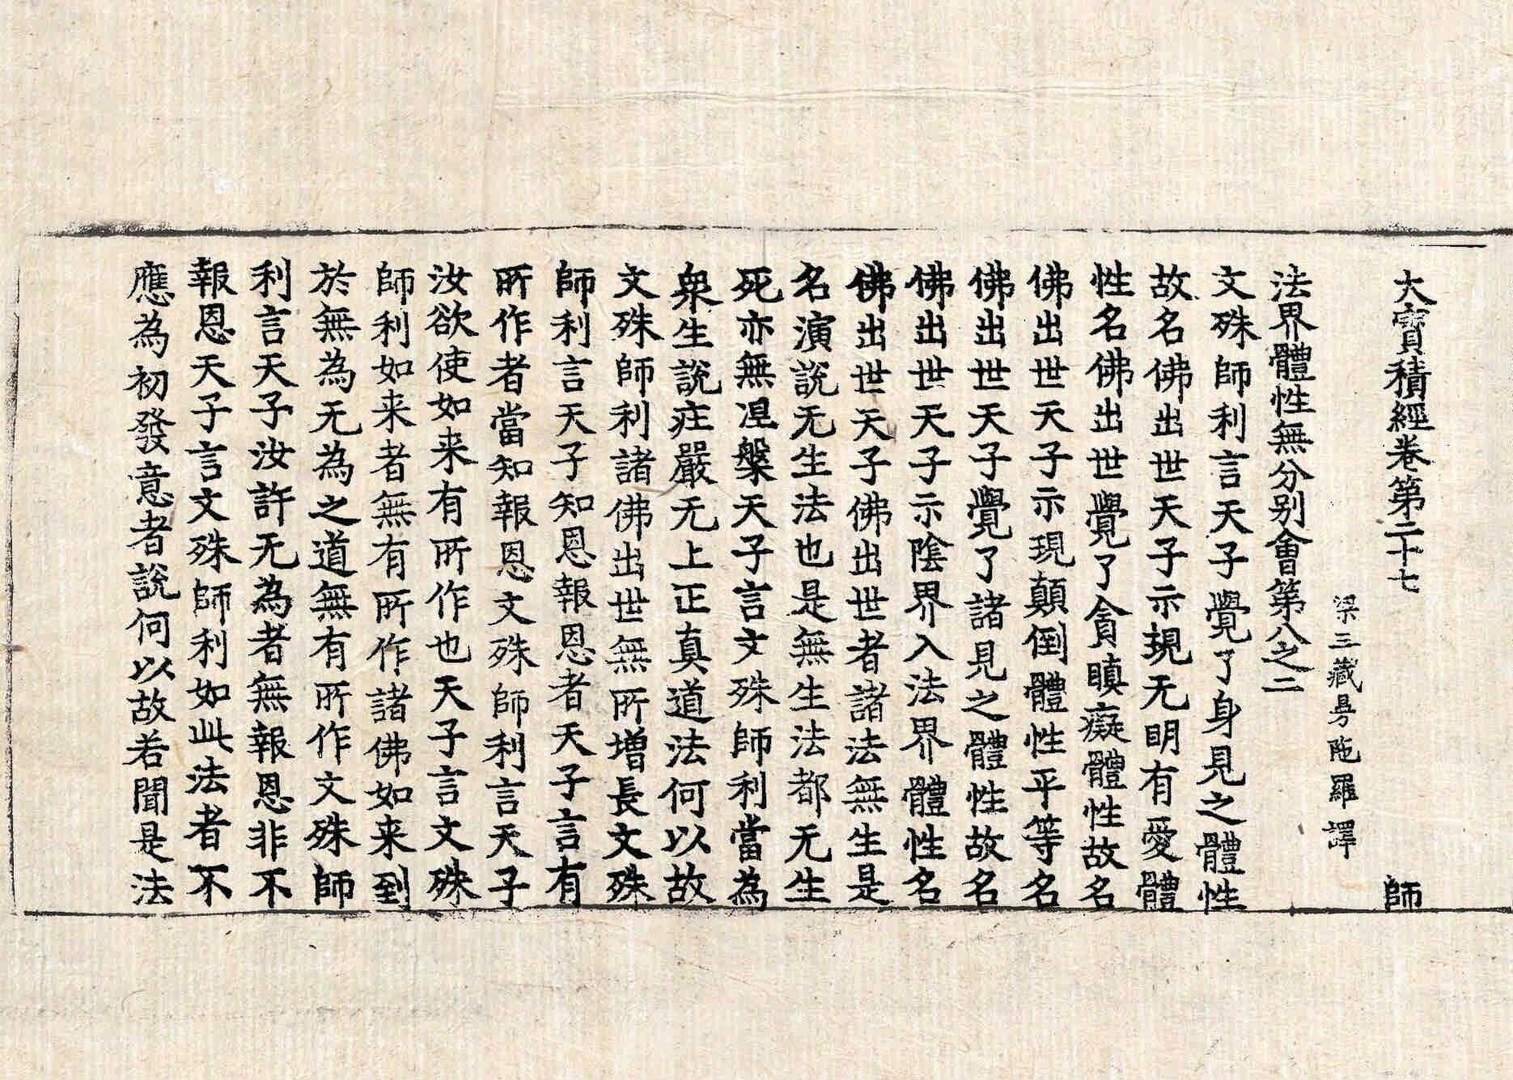 大寶積經卷第二十七 師
梁三藏曼陁羅譯
法界體性無分别會第八之二
文殊師利言天子覺了身見之體性
故名佛出世天子示現无明有愛體
性名佛出世覺了貪瞋癡體性故名
佛出世天子示現顛倒體性平等名
佛出世天子覺了諸見之體性故名
佛出世天子示陰界入法界體性名
佛出世天子佛出世者諸法無生是
名演説无生法也是無生法都无生
死亦無涅槃天子言文殊師利當為
衆生説莊嚴无上正真道法何以故
文殊師利諸佛出世無所增長文殊
師利言天子知恩報恩者天子言有
所作者當知報恩文殊師利言天子
汝欲使如来有所作也天子言文殊
師利如来者無有所作諸佛如来到
於無為无為之道無有所作文殊師
利言天子汝許无為者無報恩非不
報恩天子言文殊師利如此法者不
應為初發意者説何以故若聞是法